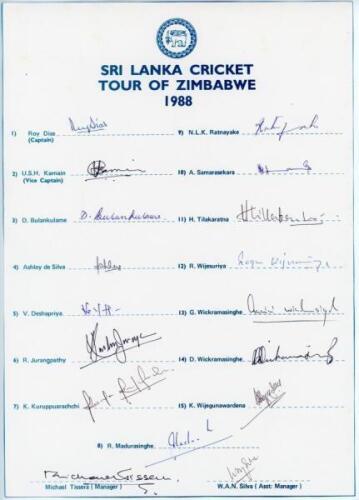 SRI LANKA CRICKET
TOUR OF ZIMBABWE
1988
1) Roy Dias
(Captain)
9) N.L.K. Ratnayake
2) U.S.H. Karnain
(Vice Captain)
10) A. Samarasekara
3) D. Bulankulame
11) H. Tilakaratna
4) Ashley de Silva
12) R. Wijesuriya
5) V. Deshapriya
13) G. Wickramasinghe
6) R. Jurangpathy
14) D. Wickramasinghe
7) K. Kuruppuarachchi
15) K. Wijegunawardena
8) R. Madurasinghe
Michael Tissera (Manager)
W.A.N. Silva (Asst: Manager)